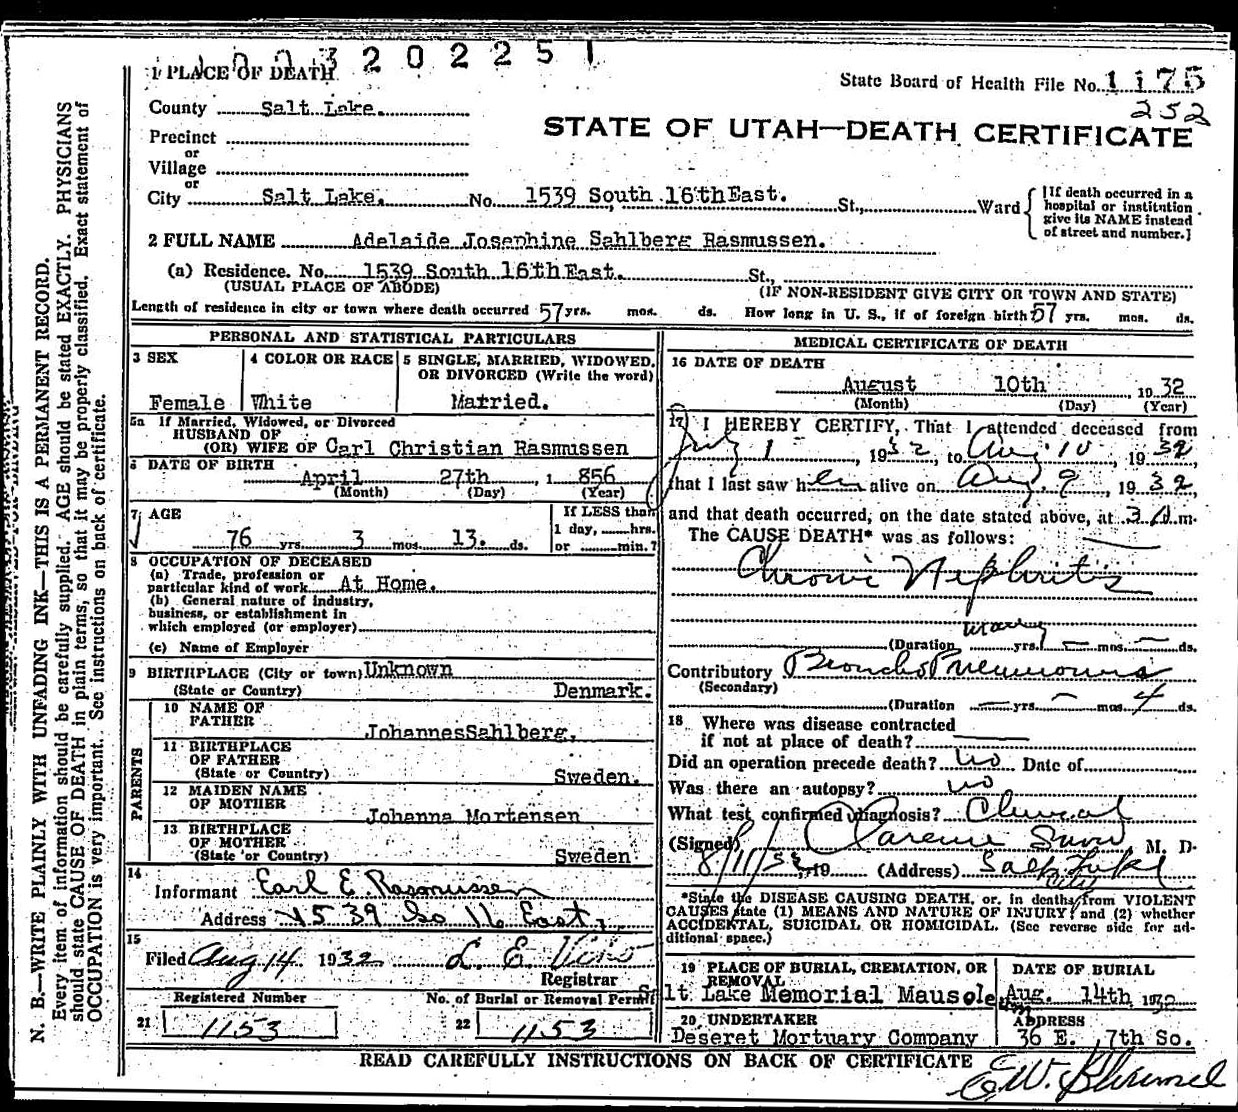 1003202251
1 PLACE OF DEATH
State Board of Health File No. 1175
252
County Salt Lake.
STATE OF UTAH—DEATH CERTIFICATE
Precinct
or
Village
or
City Salt Lake. No. 1539 South 16th East. St., Ward
[If death occurred in a hospital or institution give its NAME instead of street and number.]
2 FULL NAME Adelaide Josephine Sahlberg Rasmussen.
(a) Residence. No. 1539 South 16th East. St.,
(USUAL PLACE OF ABODE) (IF NON-RESIDENT GIVE CITY OR TOWN AND STATE)
Length of residence in city or town where death occurred 57 yrs. mos. ds. How long in U. S., if of foreign birth 57 yrs. mos. ds.
PERSONAL AND STATISTICAL PARTICULARS
3 SEX
Female
4 COLOR OR RACE
White
5 SINGLE, MARRIED, WIDOWED, OR DIVORCED (Write the word)
Married.
5a If Married, Widowed, or Divorced
HUSBAND OF
(OR) WIFE OF Carl Christian Rasmussen
6 DATE OF BIRTH
April 27th, 1 856
(Month) (Day) (Year)
7 AGE
76 yrs. 3 mos. 13. ds.
If LESS than
1 day, hrs.
or min.?
8 OCCUPATION OF DECEASED
(a) Trade, profession or
particular kind of work At Home.
(b) General nature of industry,
business, or establishment in
which employed (or employer)
(c) Name of Employer
9 BIRTHPLACE (City or town) Unknown
(State or Country) Denmark.
PARENTS
10 NAME OF
FATHER
Johannes Sahlberg.
11 BIRTHPLACE
OF FATHER
(State or Country) Sweden.
12 MAIDEN NAME
OF MOTHER
Johanna Mortensen
13 BIRTHPLACE
OF MOTHER
(State or Country) Sweden
14
Informant Earl E. Rasmussen
Address 1539 So 16 East
15
Filed Aug 14 1932 L. E.
Registrar
Registered Number
21 1153
No. of Burial or Removal Permit
22 1153
MEDICAL CERTIFICATE OF DEATH
16 DATE OF DEATH
August 10th, 1932
(Month) (Day) (Year)
17 I HEREBY CERTIFY, That I attended deceased from
July 1, 1932, to Aug 10, 1932,
that I last saw her alive on Aug. 9, 1932,
and that death occurred, on the date stated above, at 3 A m.
The CAUSE DEATH* was as follows:
Chronic Nephritis
(Duration many yrs. — mos. — ds.
Contributory Broncho Pneumonia
(Secondary)
(Duration — yrs. — mos. 4 ds.
18 Where was disease contracted
if not at place of death?
Did an operation precede death? no Date of
Was there an autopsy? no
What test confirmed diagnosis? Clinical
(Signed) Clarence Snow, M. D.
8/11/32, 19 (Address) Salt Lake
City
*State the DISEASE CAUSING DEATH, or, in deaths from VIOLENT
CAUSES state (1) MEANS AND NATURE OF INJURY and (2) whether
ACCIDENTAL, SUICIDAL OR HOMICIDAL. (See reverse side for ad-
ditional space.)
19 PLACE OF BURIAL, CREMATION, OR
REMOVAL
Slt Lake Memorial Mausoleum
DATE OF BURIAL
Aug. 14th 1932
20 UNDERTAKER
Deseret Mortuary Company
ADDRESS
36 E. 7th So.
READ CAREFULLY INSTRUCTIONS ON BACK OF CERTIFICATE
E.W.
N. B.—WRITE PLAINLY WITH UNFADING INK—THIS IS A PERMANENT RECORD.
Every item of information should be carefully supplied. AGE should be stated EXACTLY. PHYSICIANS
should state CAUSE OF DEATH in plain terms, so that it may be properly classified. Exact statement of
OCCUPATION is very important. See instructions on back of certificate.